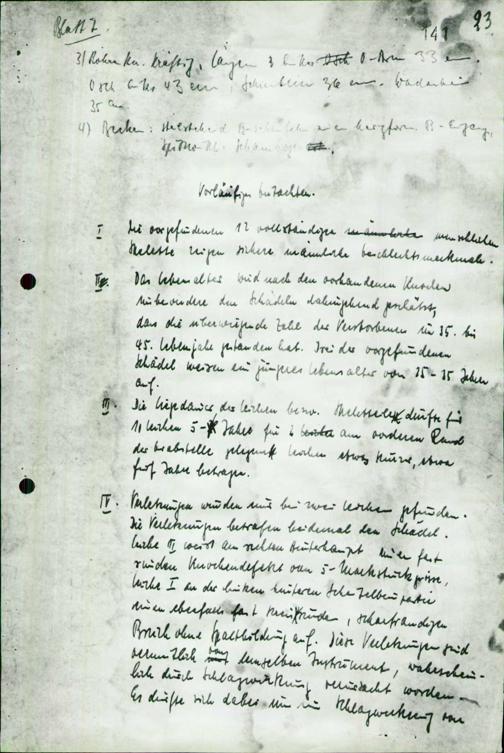 Blatt 7
141 23
3) Röhrenkn. kräftig, Längen 3 links O-Arm 33 cm
Osch links 43 cm, Schienbein 36 cm. Wadenbein
35 cm
4) Becken:
Vorläufiges Gutachten.
I Die vorgefundenen 12 vollständigen männliche menschlichen
Skelette zeigen sichere männliche Geschlechtsmerkmale.
II. Das Lebensalter wird nach den vorhandenen Knochen
insbesondere den Schädeln dahingehend geschätzt,
dass die überwiegende Zahl der Verstorbenen im 35. bis
45. Lebensjahr gestanden hat. Drei der vorgefundenen
Schädel weisen ein jüngeres Lebensalter von 25-35 Jahren
auf.
III. Die Liegedauer der Leichen bezw. Skelette dürfte für
11 Leichen 5- Jahre für am vorderen Rand
der Grabstelle gelegene Leichen etwas kürzer, etwa
fünf Jahre betragen.
IV. Verletzungen wurden nur bei zwei Leichen gefunden.
Die Verletzungen betrafen beidemal den Schädel.
Leiche II weist am rechten Hinterhaupt einen fast
runden Knochendefekt von 5-Markstückgrösse,
Leiche I an der linken hinteren Scheitelbeinpartie
einen ebenfalls fast kreisrunden, scharfrandigen
Bruch ohne Spaltbildung auf. Diese Verletzungen sind
vermutlich von demselben Instrument, wahrschein-
lich durch Schlagwirkung verursacht worden.
Es dürfte sich dabei um ein Schlagwerkzeug von